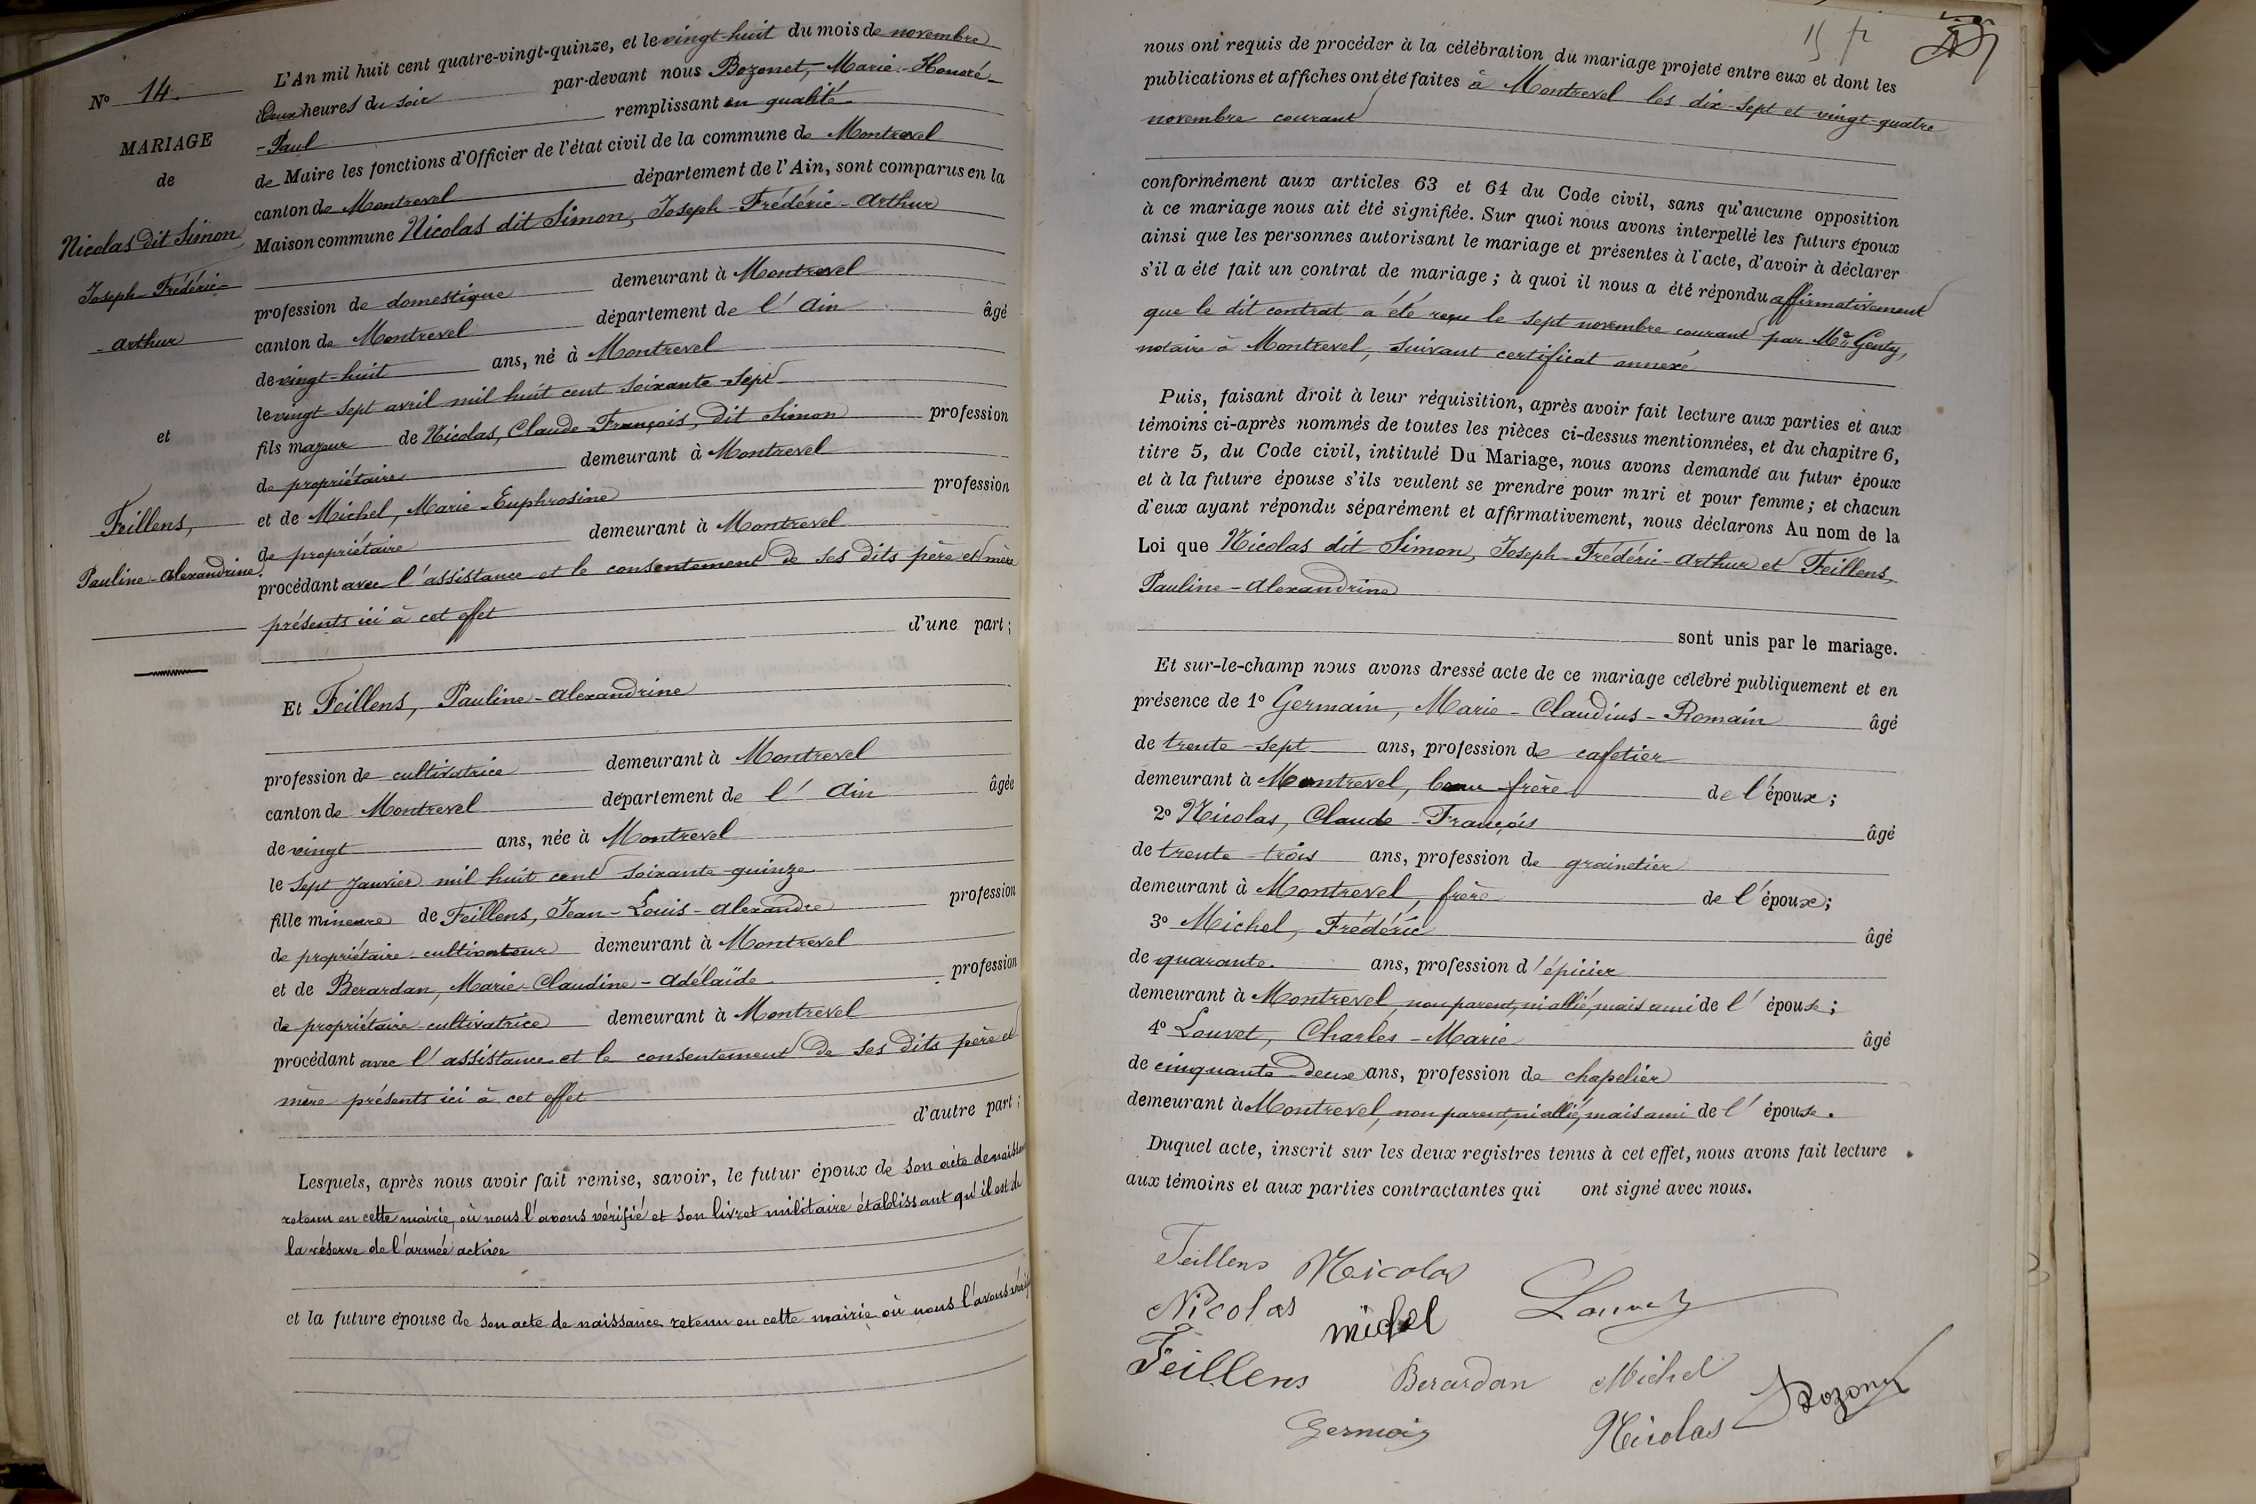 Nº 14.
MARIAGE
de
Nicolas dit Simon
Joseph-Frédéric-
-Arthur
et
Feillens,
Pauline-Alexandrine.
L'An mil huit cent quatre-vingt-quinze, et le vingt-huit du mois de novembre
deux heures du soir par-devant nous Bozonet, Marie-Honoré-
-Paul remplissant en qualité
de Maire les fonctions d'Officier de l'état civil de la commune de Montrevel
canton de Montrevel département de l'Ain, sont comparus en la
Maison commune Nicolas dit Simon, Joseph-Frédéric-Arthur
profession de domestique demeurant à Montrevel
canton de Montrevel département de l'Ain âgé
de vingt-huit ans, né à Montrevel
le vingt-sept avril mil huit cent soixante-sept
fils majeur de Nicolas, Claude-François, dit Simon profession
de propriétaire demeurant à Montrevel
et de Michel, Marie-Euphrosine profession
de propriétaire demeurant à Montrevel
procédant avec l'assistance et le consentement de ses dits père et mère
présents ici à cet effet
d'une part;
Et Feillens, Pauline-Alexandrine
profession de cultivatrice demeurant à Montrevel
canton de Montrevel département de l'Ain âgée
de vingt ans, née à Montrevel
le sept Janvier mil huit cent soixante-quinze
fille mineure de Feillens, Jean-Louis-Alexandre profession
de propriétaire-cultivateur demeurant à Montrevel
et de Berardan, Marie-Claudine-Adélaïde profession
de propriétaire-cultivatrice demeurant à Montrevel
procédant avec l'assistance et le consentement de ses dits père et
mère présents ici à cet effet
d'autre part;
Lesquels, après nous avoir fait remise, savoir, le futur époux de son acte de naissance
retenu en cette mairie, où nous l'avons vérifié et son livret militaire établissant qu'il est de
la réserve de l'armée active
et la future épouse de son acte de naissance retenu en cette mairie où nous l'avons vérifié
nous ont requis de procéder à la célébration du mariage projeté entre eux et dont les
publications et affiches ont été faites à Montrevel les dix-sept et vingt-quatre
novembre courant
conformément aux articles 63 et 64 du Code civil, sans qu'aucune opposition
à ce mariage nous ait été signifiée. Sur quoi nous avons interpellé les futurs époux
ainsi que les personnes autorisant le mariage et présentes à l'acte, d'avoir à déclarer
s'il a été fait un contrat de mariage; à quoi il nous a été répondu affirmativement
que le dit contrat a été reçu le sept novembre courant par Me Genty,
notaire à Montrevel, suivant certificat annexé
Puis, faisant droit à leur réquisition, après avoir fait lecture aux parties et aux
témoins ci-après nommés de toutes les pièces ci-dessus mentionnées, et du chapitre 6,
titre 5, du Code civil, intitulé Du Mariage, nous avons demandé au futur époux
et à la future épouse s'ils veulent se prendre pour mari et pour femme; et chacun
d'eux ayant répondu séparément et affirmativement, nous déclarons Au nom de la
Loi que Nicolas dit Simon, Joseph-Frédéric-Arthur et Feillens,
Pauline-Alexandrine
sont unis par le mariage.
Et sur-le-champ nous avons dressé acte de ce mariage célébré publiquement et en
présence de 1º Germain, Marie-Claudius-Romain âgé
de trente-sept ans, profession de cafetier
demeurant à Montrevel, beau-frère de l'époux;
2º Nicolas, Claude-François âgé
de trente-trois ans, profession de grainetier
demeurant à Montrevel, frère de l'époux;
3º Michel, Frédéric âgé
de quarante. ans, profession d'épicier
demeurant à Montrevel, non parent, ni allié, mais ami de l'épouse;
4º Louvet, Charles-Marie âgé
de cinquante-deux ans, profession de chapelier
demeurant à Montrevel, non parent, ni allié, mais ami de l'épouse.
Duquel acte, inscrit sur les deux registres tenus à cet effet, nous avons fait lecture
aux témoins et aux parties contractantes qui ont signé avec nous.
Feillens Nicolas
Nicolas michel Louvet
Feillens Berardan Michel
Germain Nicolas Bozonet